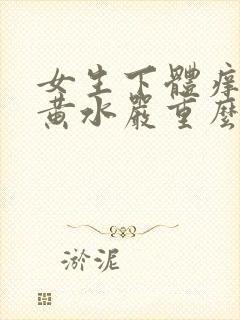 女生下體痒
黃水嚴重麼
淤泥